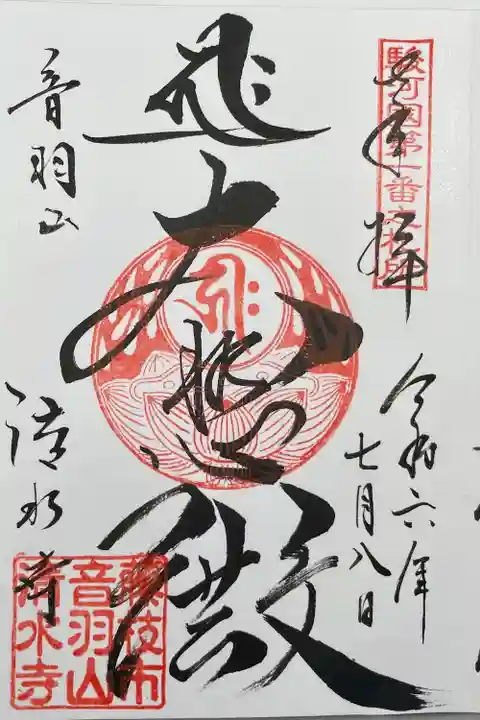 駿河国第一番之札所
奉拝
令和六年
七月八日
大悲殿
音羽山
清水寺
藤枝市
音羽山
清水寺